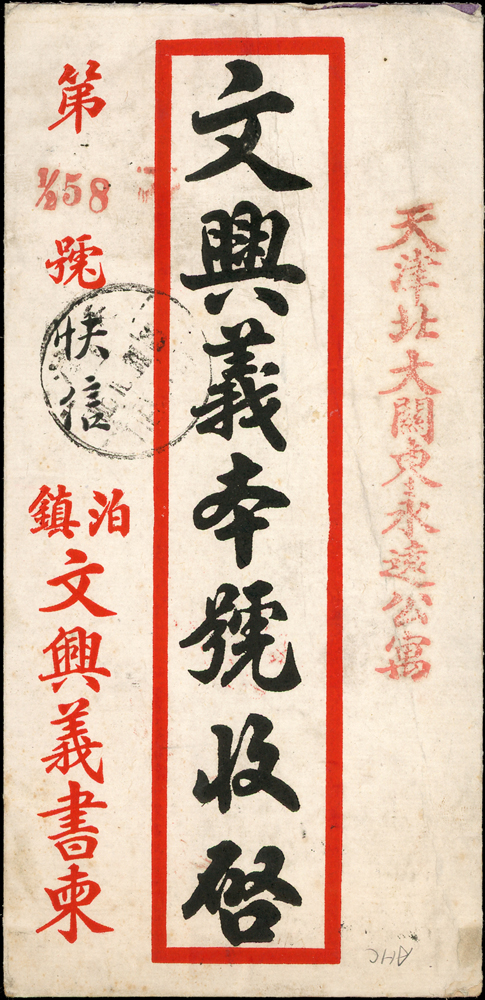 天津北大關東永遠公寓
文興義本號收啓
第
½58
號
快信
泊鎮
文興義書柬
AHC